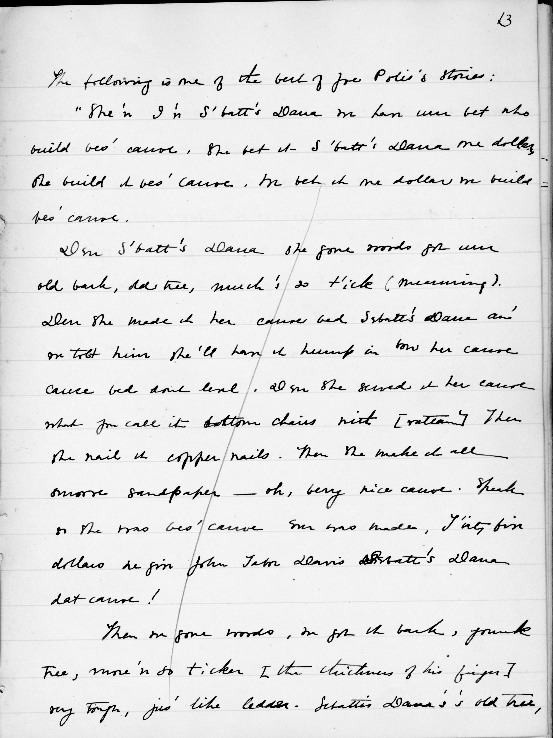 13
The following is one of the best of Joe Polis's stories:
"She'n I'n S'batt's Dana we have um bet who
build bes' canoe. She bet it S'batt's Dana one dollar,
she build it bes' canoe. We bet it one dollar we build
bes' canoe.
Den S'batt's Dana she gone woods got um
old bark, old tree, much's so t'ick (measuring).
Den she made it her canoe bed S'batt's Dana an'
we told him she'll have it hump in bow her canoe
cause bed dont level. Den she sewed it her canoe
what you call it bottom chairs with [rattan] Then
she nail it copper nails. Then she make it all
smoove sandpaper — oh, berry nice canoe. Speak
so she was bes' canoe ever was made, T'irty five
dollars he give John Tabor Davis S'batt's Dana
dat canoe!
Then we gone woods, we got it bark, younk
tree, more'n so ticker [the thickness of his finger]
very tough, jus' like ledder. S'battis Dana's's old tree,